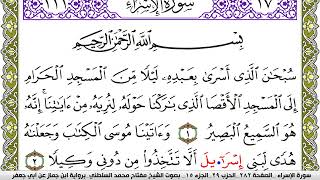 ١١١ سُورَةُ الإِسْرَاءِ ١٧
بِسْمِ اللَّهِ الرَّحْمَٰنِ الرَّحِيمِ
سُبْحَٰنَ الَّذِى أَسْرَىٰ بِعَبْدِهِۦ لَيْلًا مِّنَ الْمَسْجِدِ الْحَرَامِ
إِلَى الْمَسْجِدِ الْأَقْصَا الَّذِى بَٰرَكْنَا حَوْلَهُۥ لِنُرِيَهُۥ مِنْ ءَايَٰتِنَا إِنَّهُۥ
هُوَ السَّمِيعُ الْبَصِيرُ ١ وَءَاتَيْنَا مُوسَى الْكِتَٰبَ وَجَعَلْنَٰهُ
هُدًى لِّبَنِى إِسْرَٰٓءِيلَ أَلَّا تَتَّخِذُوا۟ مِن دُونِى وَكِيلًا ٢
سورة الإسراء . الصفحة ٢٨٢ . الحزب ٢٩ . الجزء ١٥ . بصوت الشيخ مفتاح محمد السلطني . برواية ابن جماز عن أبي جعفر